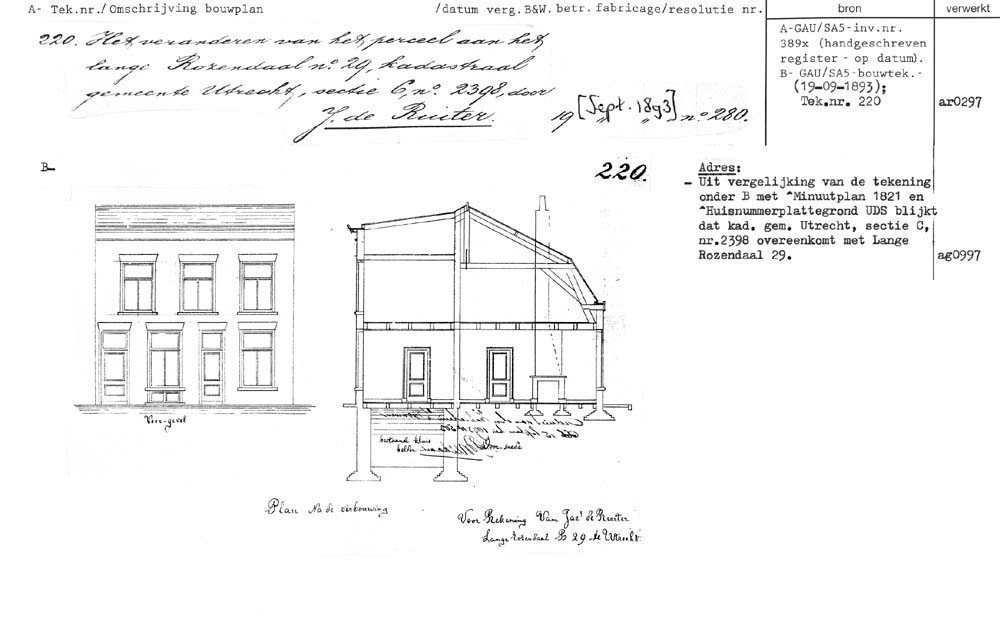 A- Tek.nr./Omschrijving bouwplan
/datum verg.B&W. betr. fabricage/resolutie nr.
bron
verwerkt
220. Het veranderen van het perceel aan het
lange Rozendaal no. 29, kadastraal
gemeente Utrecht, sectie C, no. 2398, door
J. de Ruiter.
19 [Sept. 1893] no. 280.
A-GAU/SA5-inv.nr.
389x (handgeschreven
register - op datum).
B- GAU/SA5-bouwtek.-
(19-09-1893);
Tek.nr. 220
ar0297
B-
220.
Adres:
- Uit vergelijking van de tekening
onder B met ^Minuutplan 1821 en
^Huisnummerplattegrond UDS blijkt
dat kad. gem. Utrecht, sectie C,
nr.2398 overeenkomt met Lange
Rozendaal 29.
ag0997
Voor-gevel
bestaand kluis
kelder
Plan Na de verbouwing
Voor Rekening Van Jacs de Ruiter
Lange Rozendaal B 29 te Utrecht